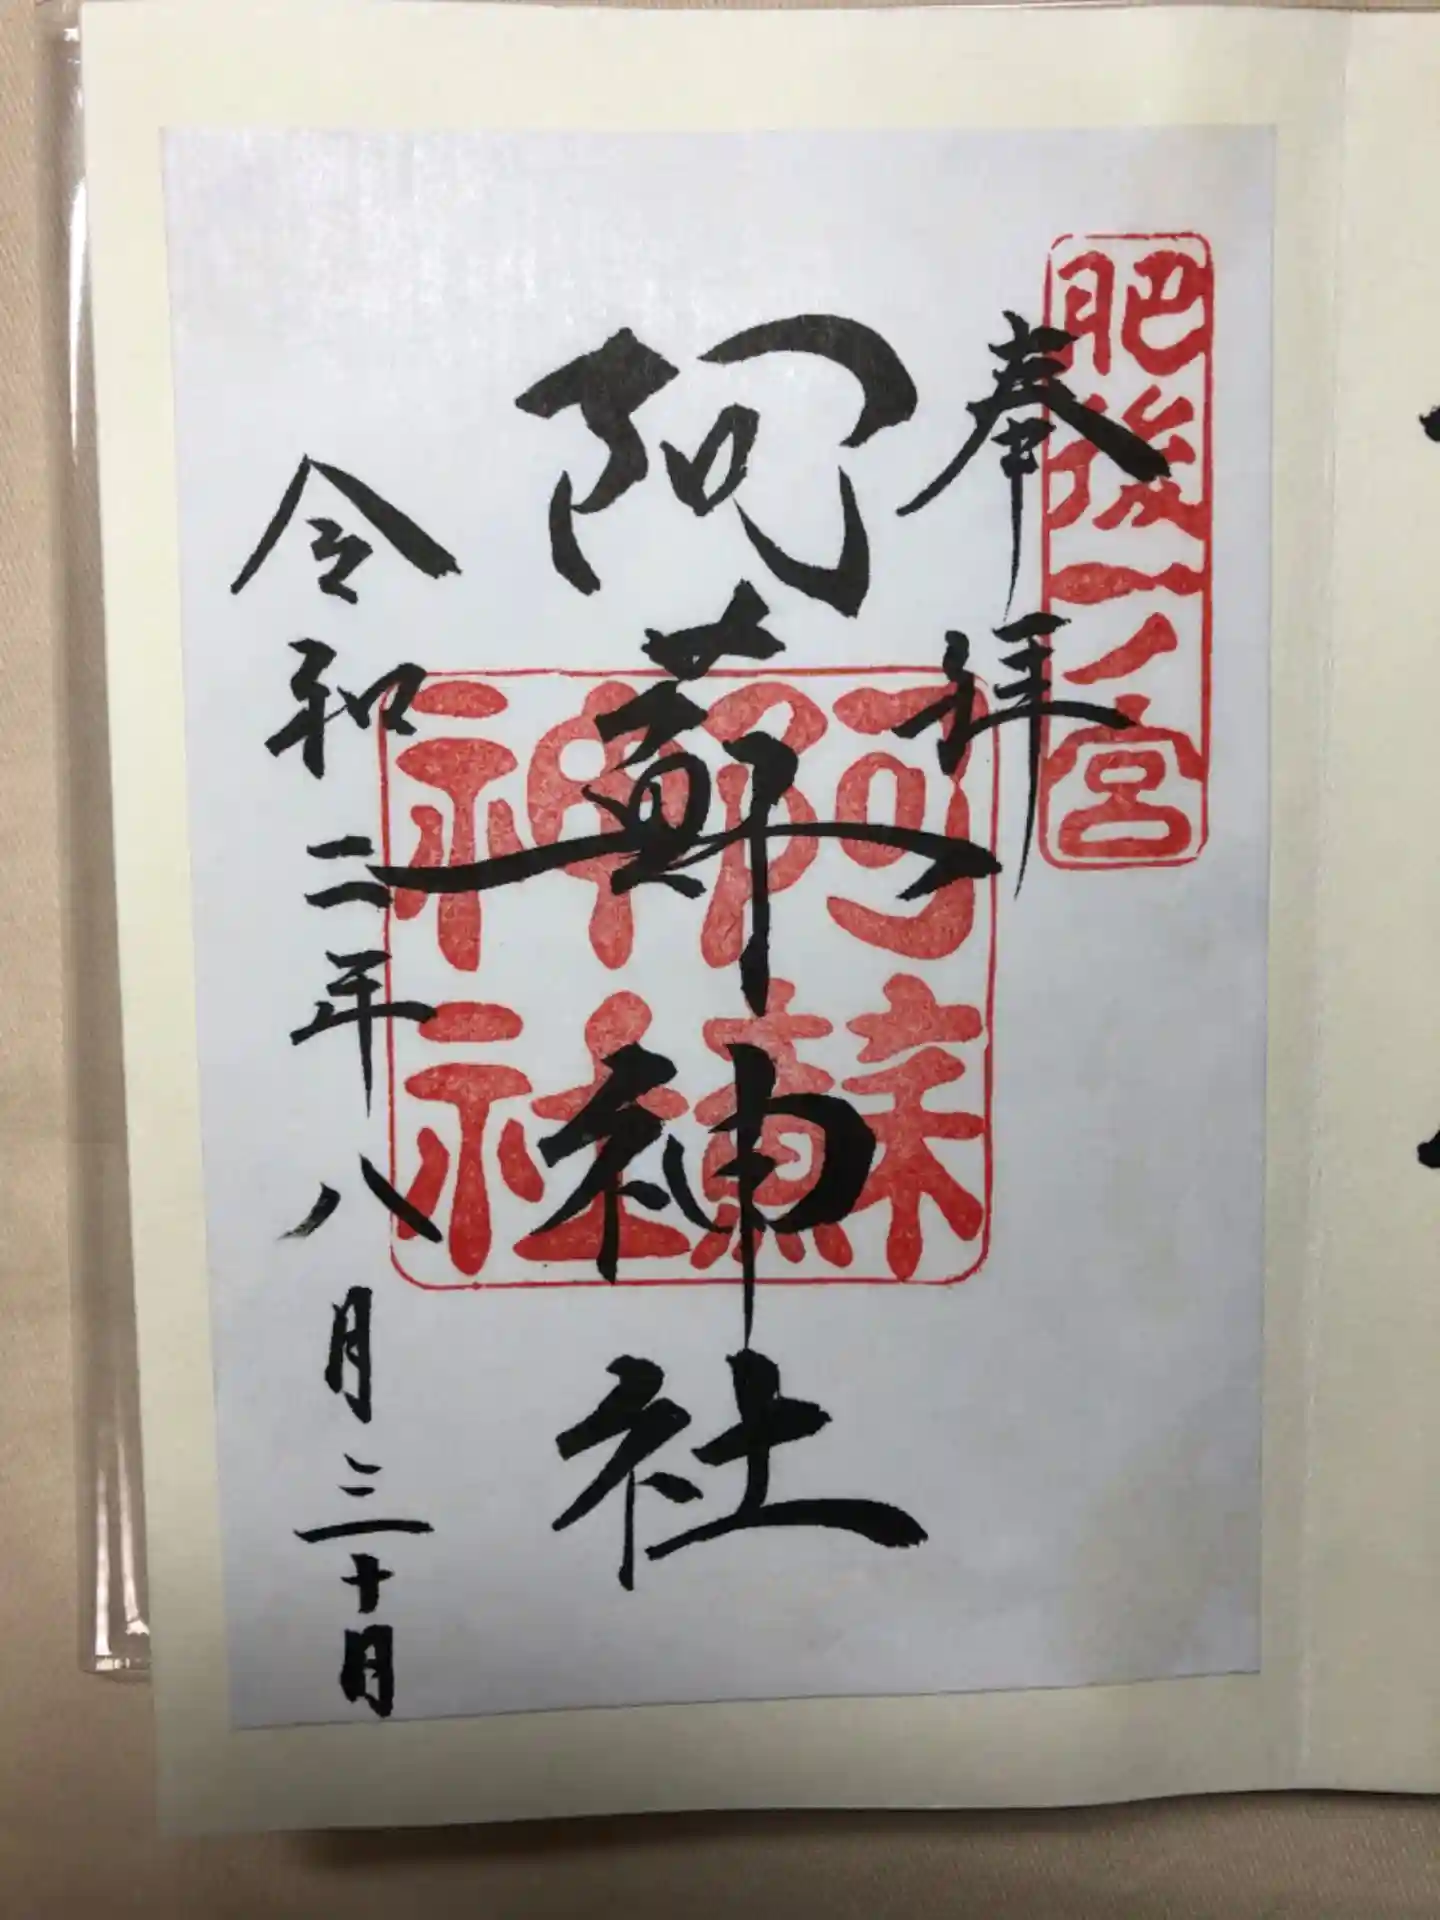 肥後一ノ宮
奉拝
阿蘇神社
阿蘇
神社
令和二年八月三十日